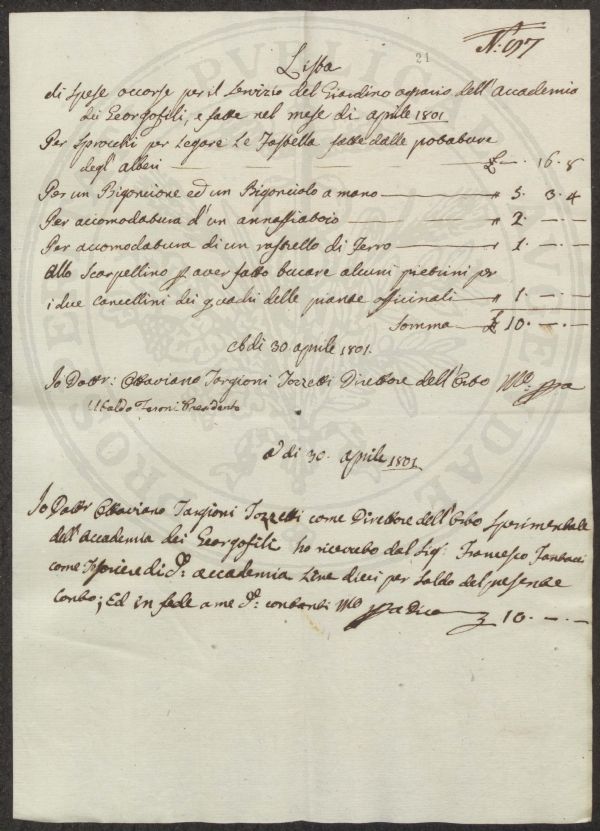 21
N:
Lista
di Spese occorse per il Servizio del Giardino agrario dell'Accademia
dei Georgofili, e fatte nel mese di aprile 1801
Per Sprocchi per Legare Le fatte dalle potature
degl'alberi £ —. 16. 8
Per un Bigoncione ed un Bigonciolo a mano " 5. 3. 4
Per accomodatura d'un annaffiatoio " 2. —. —
Per accomodatura di un rastrello di Ferro " 1. —. —
Allo Scarpellino p aver fatto bucare alcuni pietrini per
i due cancellini dei quadri delle piante officinali " 1. —. —
Somma £ 10. —. —
A di 30 aprile 1801.
Io Dottr: Ottaviano Targioni Tozzetti Direttore dell'Orto Mo. ppa
Ubaldo Feroni Presidente
A di 30. aprile 1801
Io Dottr Ottaviano Targioni Tozzetti come Direttore dell'Orto Sperimentale
dell'accademia dei Georgofili ho ricevuto dal Sigr. Francesco
come Tesoriere di Da: accademia Lire dieci per Saldo del presente
Conto; Ed in fede a me Di: contanti Mo ppa dico £ 10. —. —